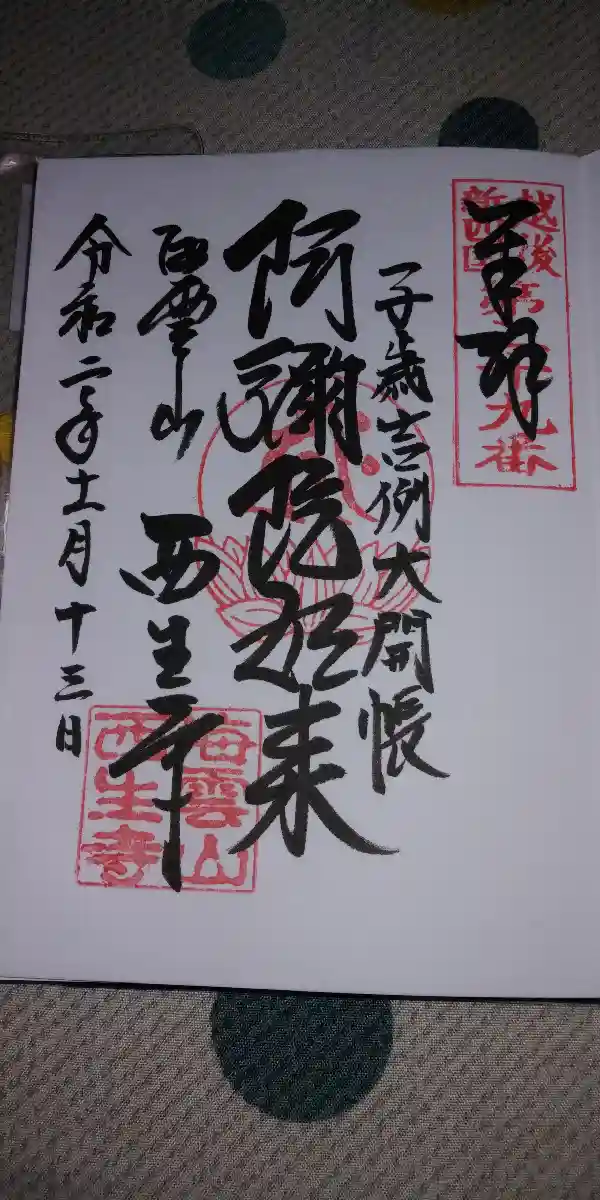 奉拝
越後
新西国
九番
子歳吉例大開帳
阿彌陀如来
海雲山
西生寺
令和二年十一月十三日
海雲山
西生寺